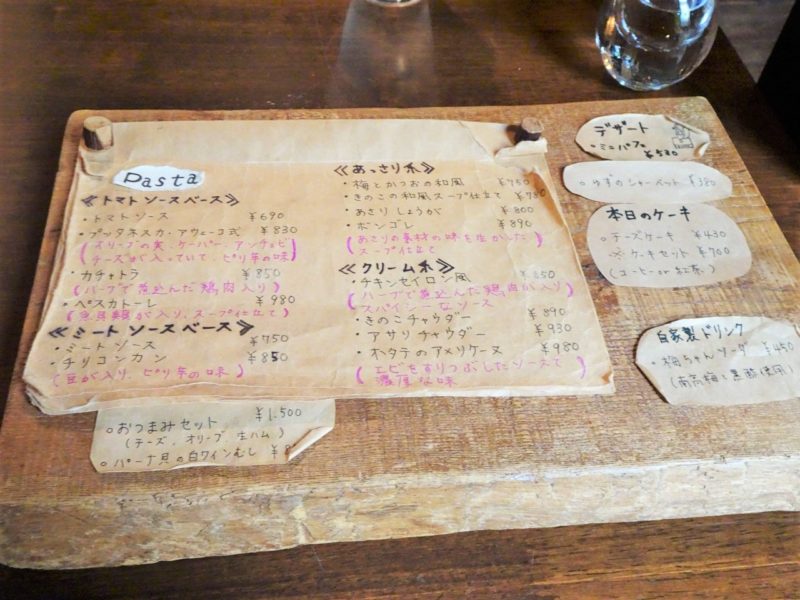 Pasta
≪トマトソースベース≫
・トマトソース ¥690
・プッタネスカ・アヴェーコ式 ¥830
(オリーブの実、ケーパー、アンチョビ
チーズが入っていて、ピリ辛の味)
・カチャトラ ¥850
(ハーブで煮込んだ鶏肉入り)
・ペスカトーレ ¥980
(魚貝類が入り、スープ仕立て)
≪ミートソースベース≫
・ミートソース ¥750
・チリコンカン ¥850
(豆が入り、ピリ辛の味)
≪あっさり系≫
・梅とかつおの和風 ¥750
・きのこの和風スープ仕立て ¥780
・あさりしょうが ¥800
・ボンゴレ ¥890
(あさりの素材の味を生かした
スープ仕立て)
≪クリーム系≫
・チキンセイロン風 ¥850
(ハーブで煮込んだ鶏肉が入り
スパイシーなソース)
・きのこチャウダー ¥890
・アサリチャウダー ¥930
・ホタテのアメリケーヌ ¥980
(エビをすりつぶしたソースで
濃厚な味)
。おつまみセット ¥1.500
(チーズ、オリーブ 生ハム)
。パーナ貝の白ワインむし ¥8
デザート
・ミニパフェ ¥520
。ゆずのシャーベット ¥380
本日のケーキ
。チーズケーキ ¥430
※ケーキセット ¥700
(コーヒー or 紅茶)
自家製ドリンク
・梅ちゃんソーダ ¥450
(南高梅と黒酢使用)